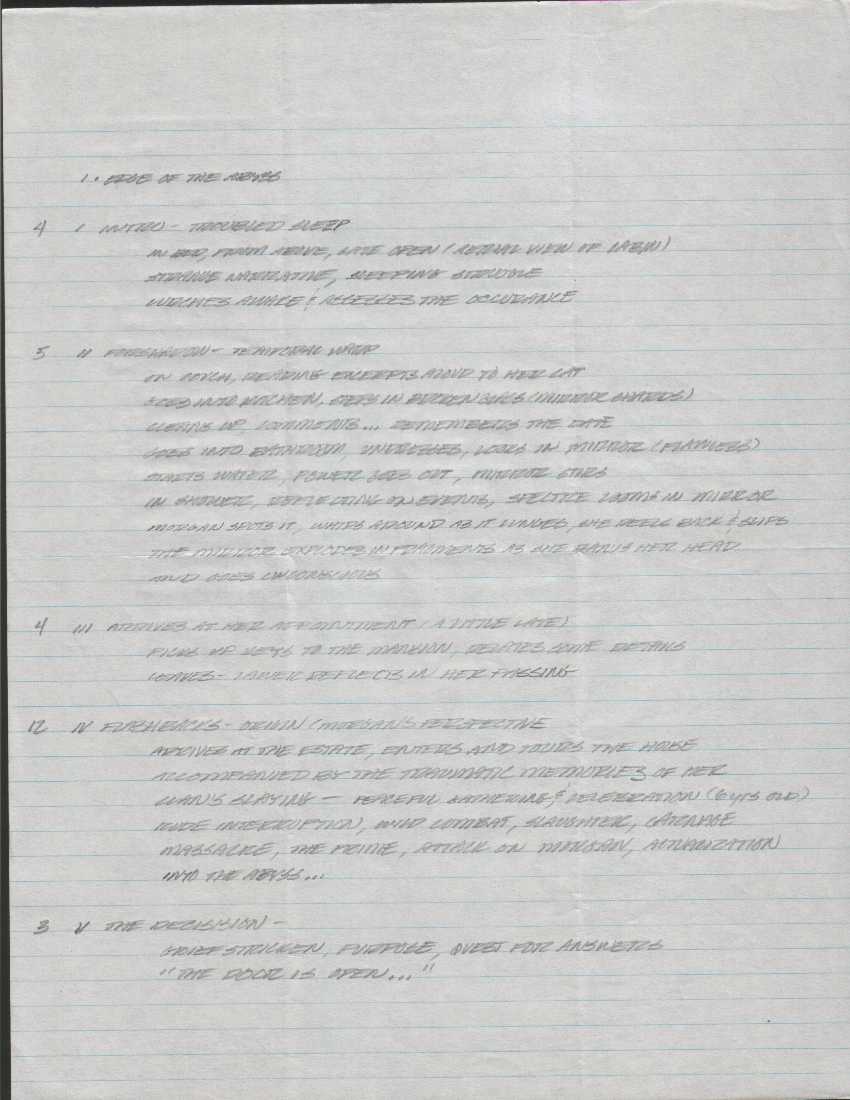 1. EDGE OF THE ABYSS
4 I INTRO - TROUBLED SLEEP
IN BED, FROM ABOVE, LATE OPEN (AERIAL VIEW OF CABIN)
STRANGE NARRATIVE, SLEEPING STRUGGLE
LURCHES AWAKE & ASSESSES THE OCCURANCE
5 II FORESHADOW - TEMPORAL WARP
ON COUCH, READING EXCERPTS ALOUD TO HER CAT
GOES INTO KITCHEN, STEPS IN BROKEN GLASS (MIRROR SHARDS)
CLEANS UP, COMMENTS... REMEMBERS THE DATE
GOES INTO BATHROOM, UNDRESSES, LOOKS IN MIRROR (FLAWLESS)
STARTS WATER, POWER GOES OUT, MIRROR STIRS
IN SHOWER, REFLECTING ON EVENTS, SPECTRE LOOMS IN MIRROR
MORGAN SPOTS IT, WHIPS AROUND AS IT LUNGES, SHE REELS BACK & SLIPS
THE MIRROR EXPLODES IN FRAGMENTS AS SHE BANGS HER HEAD
AND GOES UNCONSCIOUS
4 III ARRIVES AT HER APPOINTMENT (A LITTLE LATE)
PICKS UP KEYS TO THE MANSION, RELATES SOME DETAILS
LEAVES - LAWYER REFLECTS IN HER PASSING
12 IV FLASHBACKS - ORIGIN (MORGAN'S PERSPECTIVE
ARRIVES AT THE ESTATE, ENTERS AND TOURS THE HOUSE
ACCOMPANIED BY THE TRAUMATIC MEMORIES OF HER
CLAN'S SLAYING - PEACEFUL GATHERING & CELEBRATION (6 YRS OLD)
RUDE INTERRUPTION, WILD COMBAT, SLAUGHTER, CARNAGE
MASSACRE, THE PRIME, ATTACK ON MORGAN, ACTUALIZATION
INTO THE ABYSS...
3 V THE DECISION -
GRIEF STRICKEN, PURPOSE, QUEST FOR ANSWERS
"THE DOOR IS OPEN..."